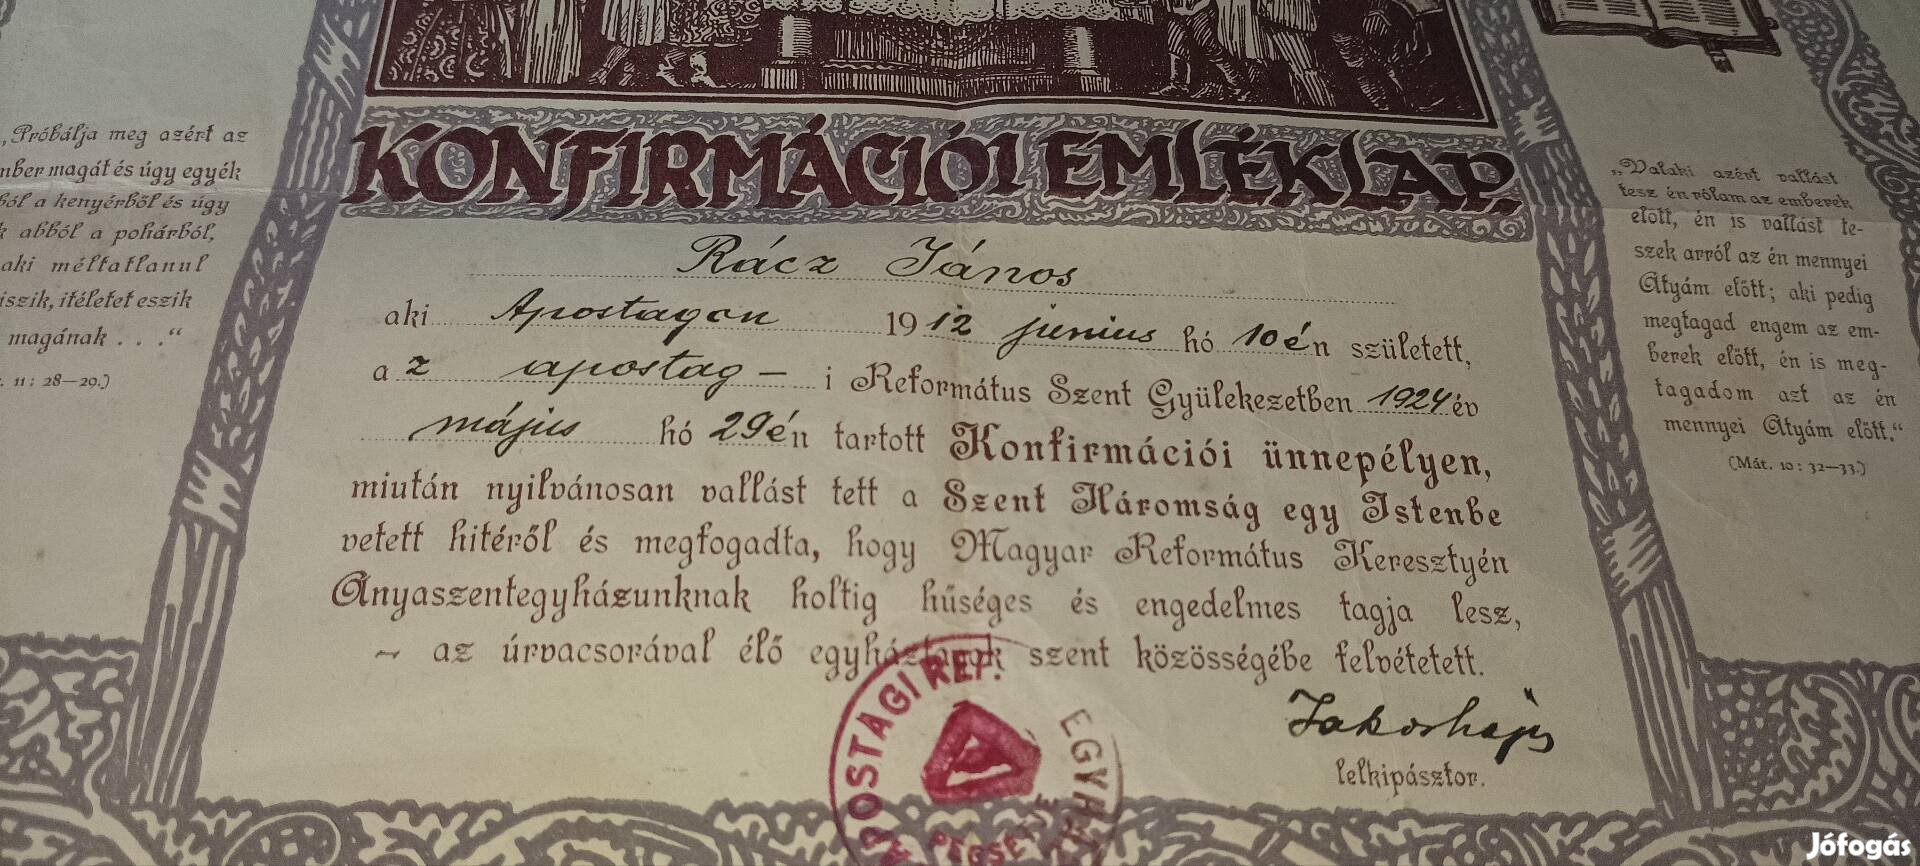 KONFIRMÁCIÓI EMLÉKLAP.
„Próbálja meg azért az
magát és úgy egyék
a kenyérből és úgy
abból a pohárból,
aki méltatlanul
iszik, ítéletet eszik
magának . . .“
11 : 28—29.)
Rácz János
aki Apostagon 1912 június hó 10én született,
az apostag - i Református Szent Gyülekezetben 1924 év
május hó 29én tartott Konfirmációi ünnepélyen,
miután nyilvánosan vallást tett a Szent Háromság egy Istenbe
vetett hitéről és megfogadta, hogy Magyar Református Keresztyén
Anyaszentegyházunknak holtig hűséges és engedelmes tagja lesz,
— az úrvacsorával élő egyháztagok szent közösségébe felvétetett.
lelkipásztor.
„Valaki azért vallást
tesz én rólam az emberek
előtt, én is vallást te-
szek arról az én mennyei
Atyám előtt; aki pedig
megtagad engem az em-
berek előtt, én is meg-
tagadom azt az én
mennyei Atyám előtt.“
(Mát. 10 : 32—33.)
APOSTAGI REF. EGYH
PECSÉTJE
Jófogás